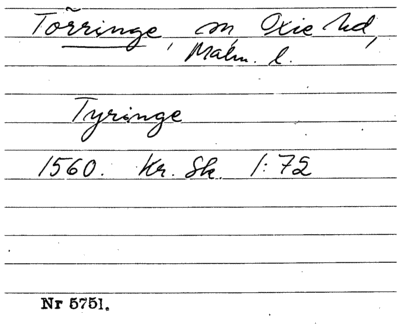 Törringe, sn, Oxie hd,
Malm. l.
Tyringe
1560. Kr. Sk. 1:72
Nr 5751.